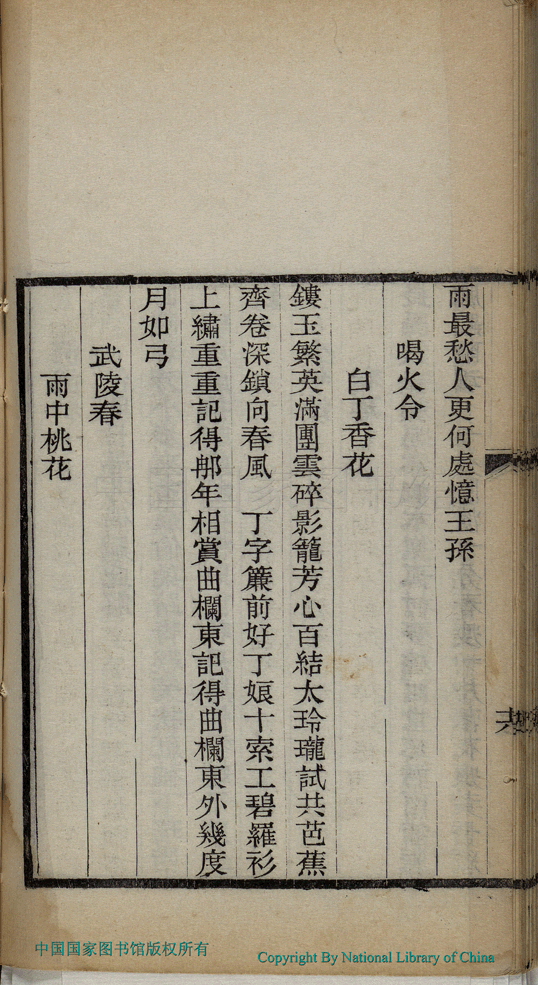 雨最愁人更何處憶王孫
喝火令
白丁香花
鏤玉繁英滿團雲碎影籠芳心百結太玲瓏試共芭蕉
齊卷深鎖向春風　丁字簾前好丁娘十索工碧羅衫
上繡重重記得那年相賞曲欄東記得曲欄東外幾度
月如弓
武陵春
雨中桃花
中国国家图书馆版权所有
Copyright By National Library of China